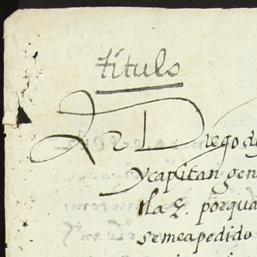 título
Don Diego de
y capitan gen
lla &. porqua
se me a pedido